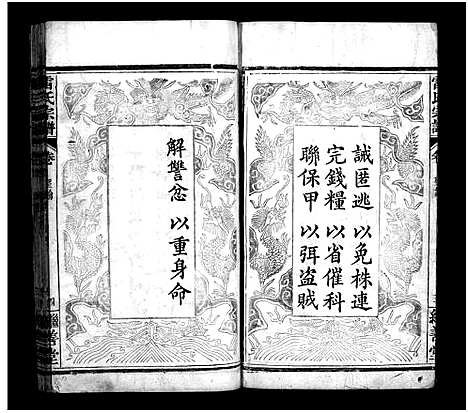 誡匿逃 以免株連
完錢糧 以省催科
聯保甲 以弭盜賊
解讐忿 以重身命
雷氏宗譜